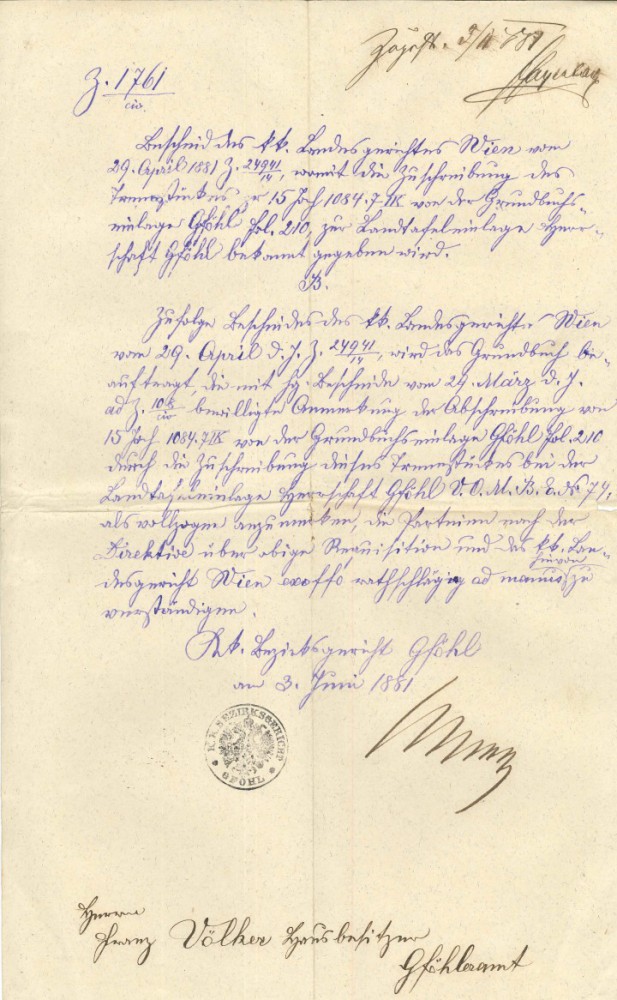 Z. 1761
civ.
Zugest. 5/11 881
Bescheid des k.k. Landesgerichtes Wien vom
29. April 1881 Z. 24941/14, womit die Zuschreibung des
Trennstückes pr 15 Joch 1084.7 □K von der Grundbuchs-
einlage Gföhl fol. 210, zur Landtafeleinlage Herr-
schaft Gföhl bekannt gegeben wird.
B.
Zufolge Bescheides des k.k. Landesgerichts Wien
vom 29. April d. J. Z. 24941/14, wird das Grundbuch be-
auftragt, die mit hg. Bescheide vom 24. März d. J.
ad Z. civ bewilligte Anmerkung der Abschreibung von
15 Joch 1084.7 □K von der Grundbuchseinlage Gföhl fol. 210
durch die Zuschreibung dieses Trennstückes bei der
Landtafeleinlage Herrschaft Gföhl V.O.M.B. E. No 74,
als vollzogen anzumerken, die Parteien nach der
Direktive über obige Requisition und das k.k. Lan-
desgericht Wien exoffo rathschlägig ad manus hievon zu
verständigen.
K.k. Bezirksgericht Gföhl
am 3. Juni 1881
K.K. BEZIRKSGERICHT
GFÖHL
Herrn
Franz Völker Hausbesitzer
Gföhleramt